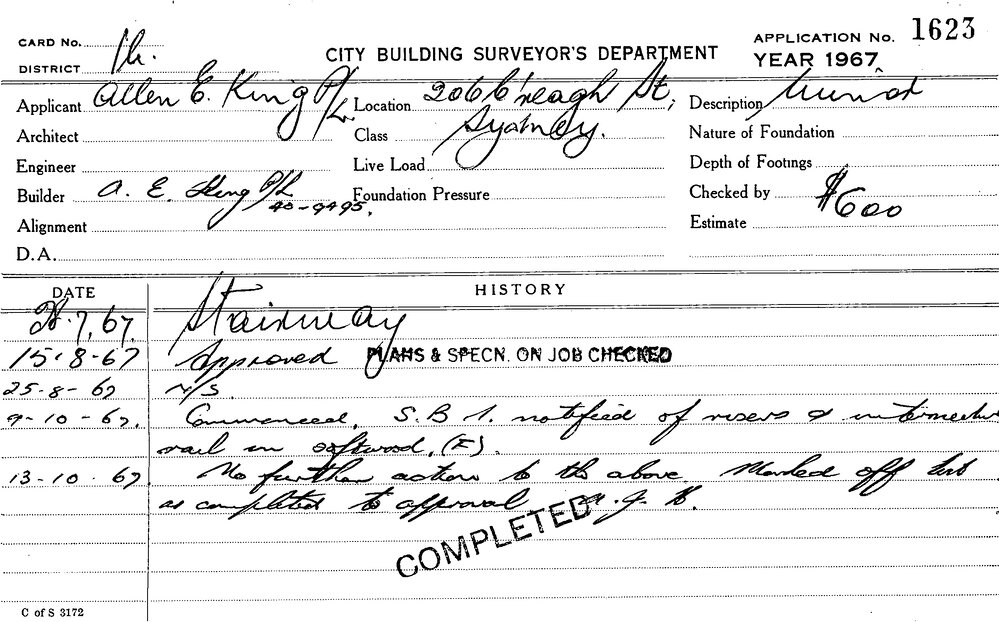 CARD No.
CITY BUILDING SURVEYOR'S DEPARTMENT
APPLICATION No. 1623
DISTRICT
YEAR 1967
Applicant Allen E. King P/L
Location 206 C'reagh St,
Sydney.
Description
Architect
Class
Nature of Foundation
Engineer
Live Load
Depth of Footings
Builder A. E. King P/L
40-9495.
Foundation Pressure
Checked by
$600
Alignment
Estimate
D.A.
DATE
HISTORY
7.67. Stairway
15-8-67 Approved PLANS & SPECN. ON JOB CHECKED
25-8-67 N/S.
9-10-67. Commenced. S.B.I. notified of risers &
rail in softwood. (F).
13-10-67 No further action to the above. Marked off
as completed to approval
COMPLETED
C of S 3172